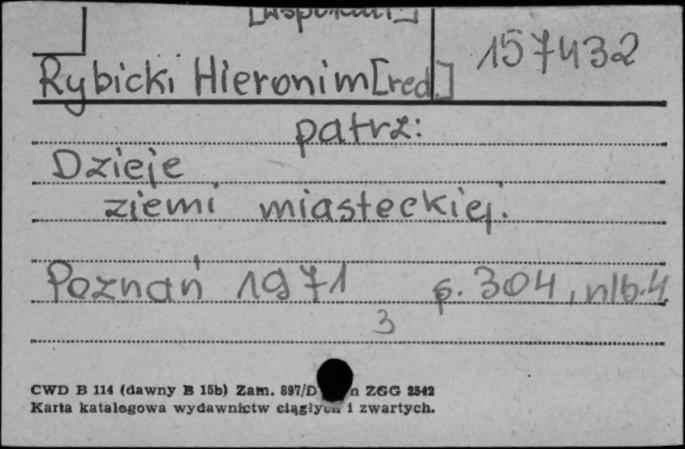 157432
Rybicki Hieronim [red.]
patrz:
Dzieje
ziemi miasteckiej.
Poznań 1971 s. 304, nlb. 4
3
CWD B 114 (dawny B 15b) Zam. 897/D n ZGG 2542
Karta katalogowa wydawnictw ciągłych i zwartych.